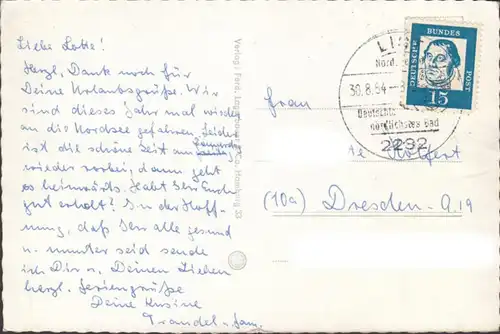 Liebe Lotte!
Herzl. Dank noch für
Deine Urlaubsgrüße. Wir
sind dieses Jahr mal wieder
an die Nordsee gefahren. Leider
ist die schöne Zeit am
wieder vorbei, dann geht
es heimwärts. Habt Ihr Euch
gut erholt? In der Hoff-
nung, daß Ihr alle gesund
u. munter seid sende
ich Dir u. Deinen Lieben
herzl. Feriengrüße
Deine Kusine
Traudel u. Fam.
Verlag: Ferd. Hamburg 33
LIST
Nord.
30.8.64
Deutschlands
nördlichstes Bad
2282
DEUTSCHE
BUNDES
POST
15
Frau
(10a) Dresden-A.19